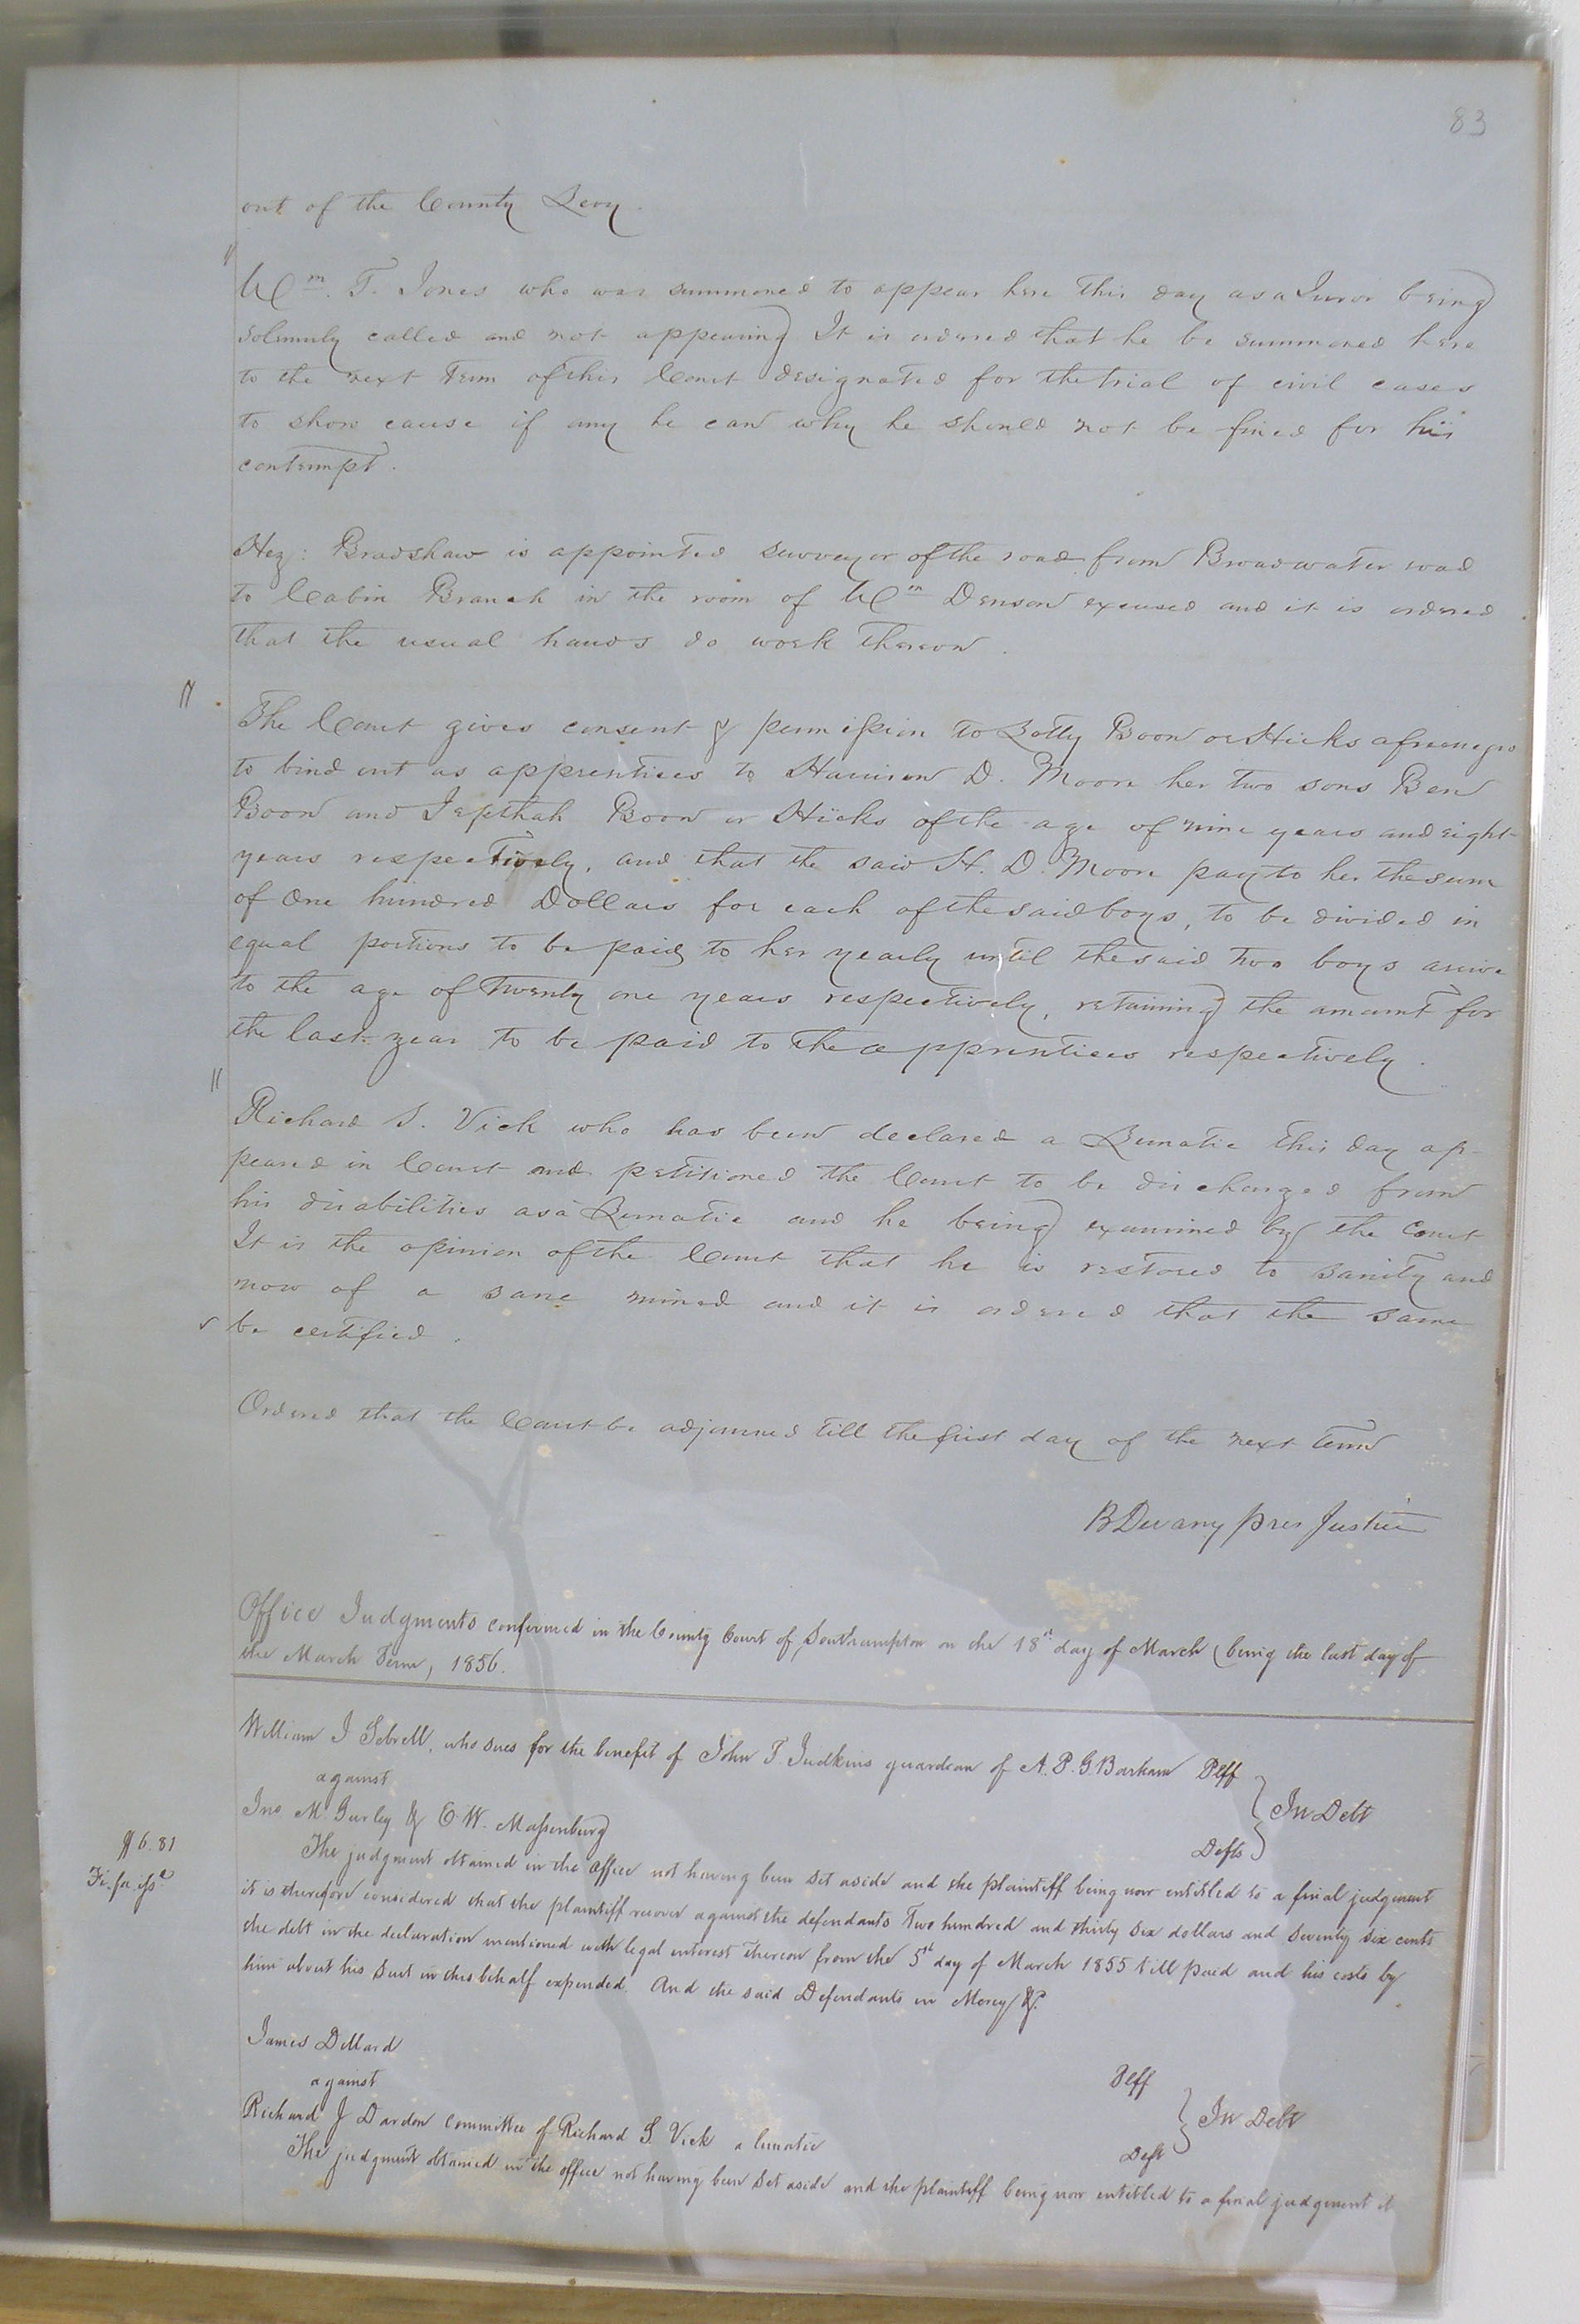 83
out of the County Levy.
Wm. T. Jones who was summoned to appear here this day as a Juror being
solemnly called and not appearing It is ordered that he be summoned here
to the next Term of this Court designated for the trial of civil cases
to show cause if any he can why he should not be fined for his
contempt.
Hez: Bradshaw is appointed surveyor of the road from Broadwater road
to Cabin Branch in the room of Wm Denson excused and it is ordered
that the usual hands do work thereon.
The Court gives consent & permission to Lotty Boon or Hicks a free negro
to bind out as apprentices to Harrison D. Moore her two sons Ben
Boon and Jepthah Boon or Hicks of the age of nine years and eight
years respectively, and that the said H. D. Moore pay to her the sum
of One hundred Dollars for each of the said boys, to be divided in
equal portions to be paid to her yearly until the said two boys arrive
to the age of Twenty one years respectively, retaining the amount for
the last year to be paid to the apprentices respectively.
Richard S. Vick who has been declared a Lunatic this day ap-
peared in Court and petitioned the Court to be discharged from
his disabilities as a Lunatic and he being examined by the Court
It is the opinion of the Court that he is restored to sanity and
now of a sane mind and it is ordered that the same
be certified.
Ordered that the Court be adjourned till the first day of the next Term
B Devany Pres Justice
Office Judgments confirmed in the County Court of Southampton on the 18th day of March (being the last day of
the March Term, 1856.
William J Sebrell, who sues for the benefit of John T. Judkins guardean of A. P. G. Barham Plff
against
In Debt
Jno. M. Gurley & E. W. Massenburg
Defts
$6.81
Fi. fa. issd
The judgment obtained in the office not having been set aside and the plaintiff being now entitled to a final judgment
it is therefore considered that the plaintiff recover against the defendants Two hundred and thirty six dollars and seventy six cents
the debt in the declaration mentioned with legal interest thereon from the 5th day of March 1855 till paid and his costs by
him about his suit in this behalf expended. And the said Defendants in Mercy &c.
James Dillard
Plff
against
In Debt
Richard J Darden Committee of Richard S. Vick a lunatic
Deft
The judgment obtained in the office not having been set aside and the plaintiff being now entitled to a final judgment it